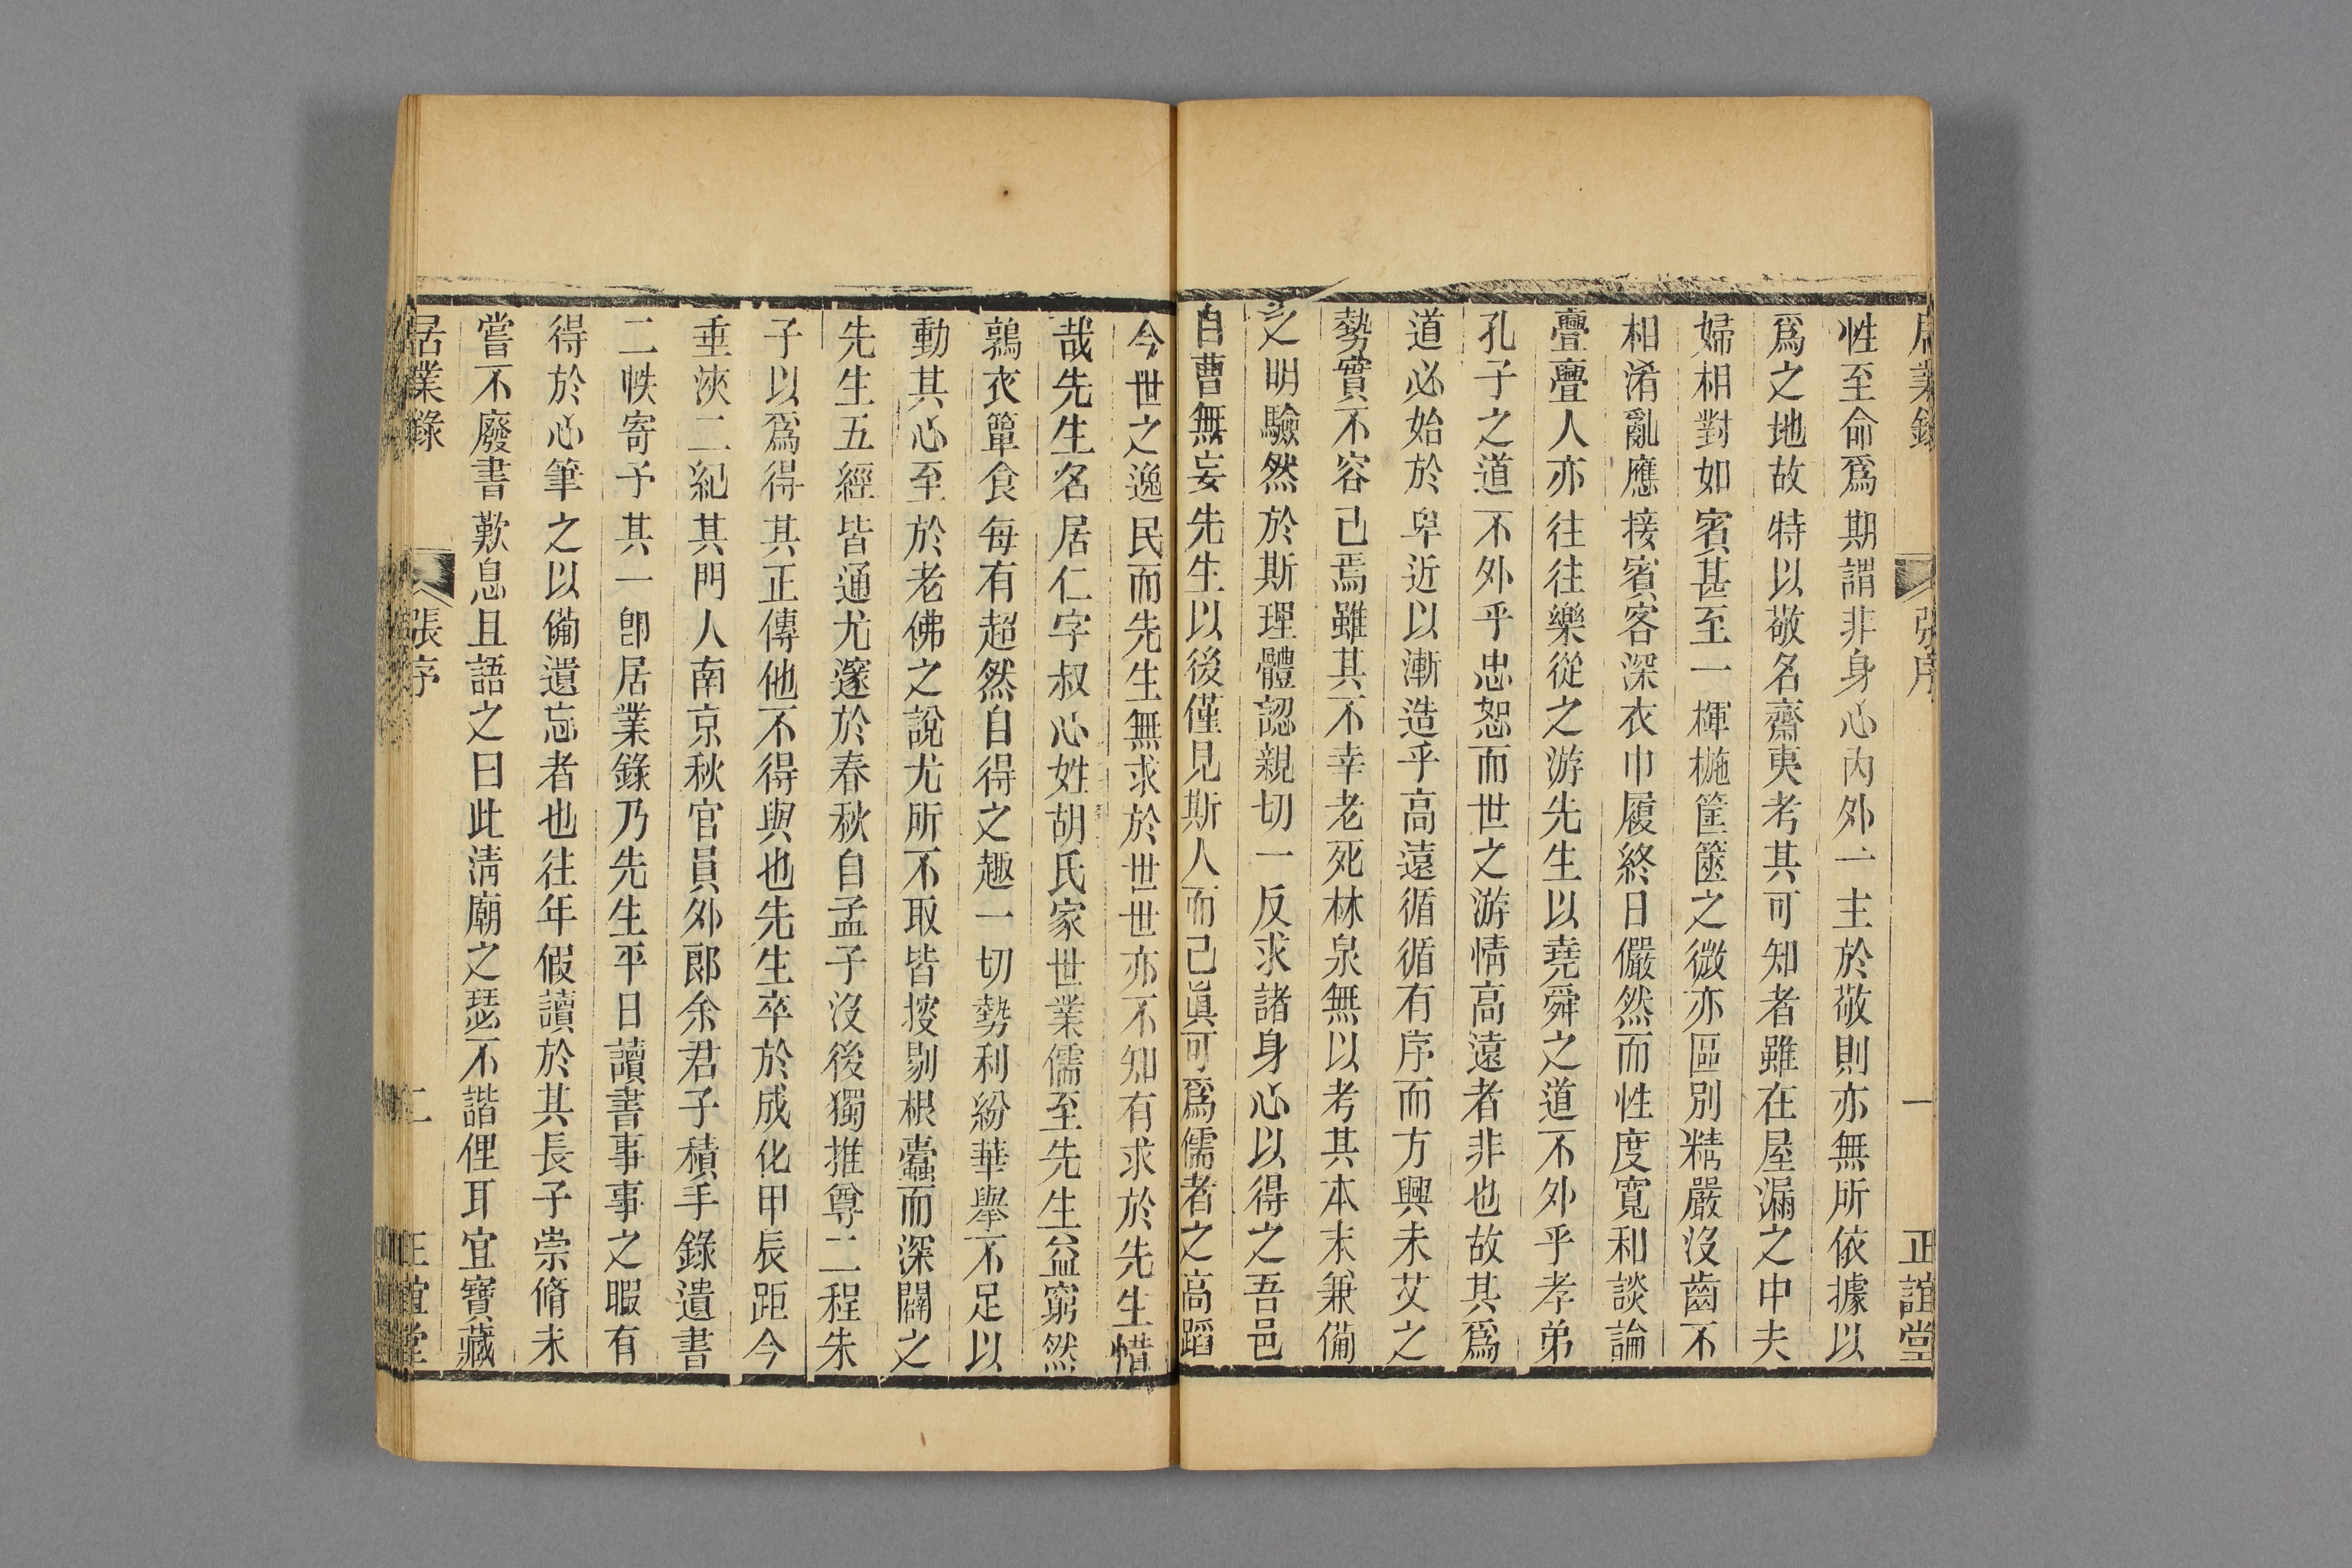 居業錄 張序 一 正誼堂
性至命爲期謂非身心內外一主於敬則亦無所依據以
爲之地故特以敬名齋夷考其可知者雖在屋漏之中夫
婦相對如賓甚至一楎椸筐篋之微亦區別精嚴沒齒不
相淆亂應接賓客深衣巾履終日儼然而性度寬和談論
亹亹人亦往往樂從之游先生以堯舜之道不外乎孝弟
孔子之道不外乎忠恕而世之游情高遠者非也故其爲
道必始於卑近以漸造乎高遠循循有序而方興未艾之
勢實不容已焉雖其不幸老死林泉無以考其本末兼備
之明驗然於斯理體認親切一反求諸身心以得之吾邑
自曹無妄先生以後僅見斯人而已眞可爲儒者之高蹈
今世之逸民而先生無求於世世亦不知有求於先生惜
哉先生名居仁字叔心姓胡氏家世業儒至先生益窮然
鶉衣簞食每有超然自得之趣一切勢利紛華舉不足以
動其心至於老佛之說尤所不取皆㨙剔根蠹而深闢之
先生五經皆通尤邃於春秋自孟子沒後獨推尊二程朱
子以爲得其正傳他不得與也先生卒於成化甲辰距今
垂浹二紀其門人南京秋官員外郎余君子積手錄遺書
二帙寄予其一卽居業錄乃先生平日讀書事事之暇有
得於心筆之以備遺忘者也往年假讀於其長子崇脩未
嘗不廢書歎息且語之曰此淸廟之瑟不諧俚耳宜寶藏
居業錄 張序 二 正誼堂